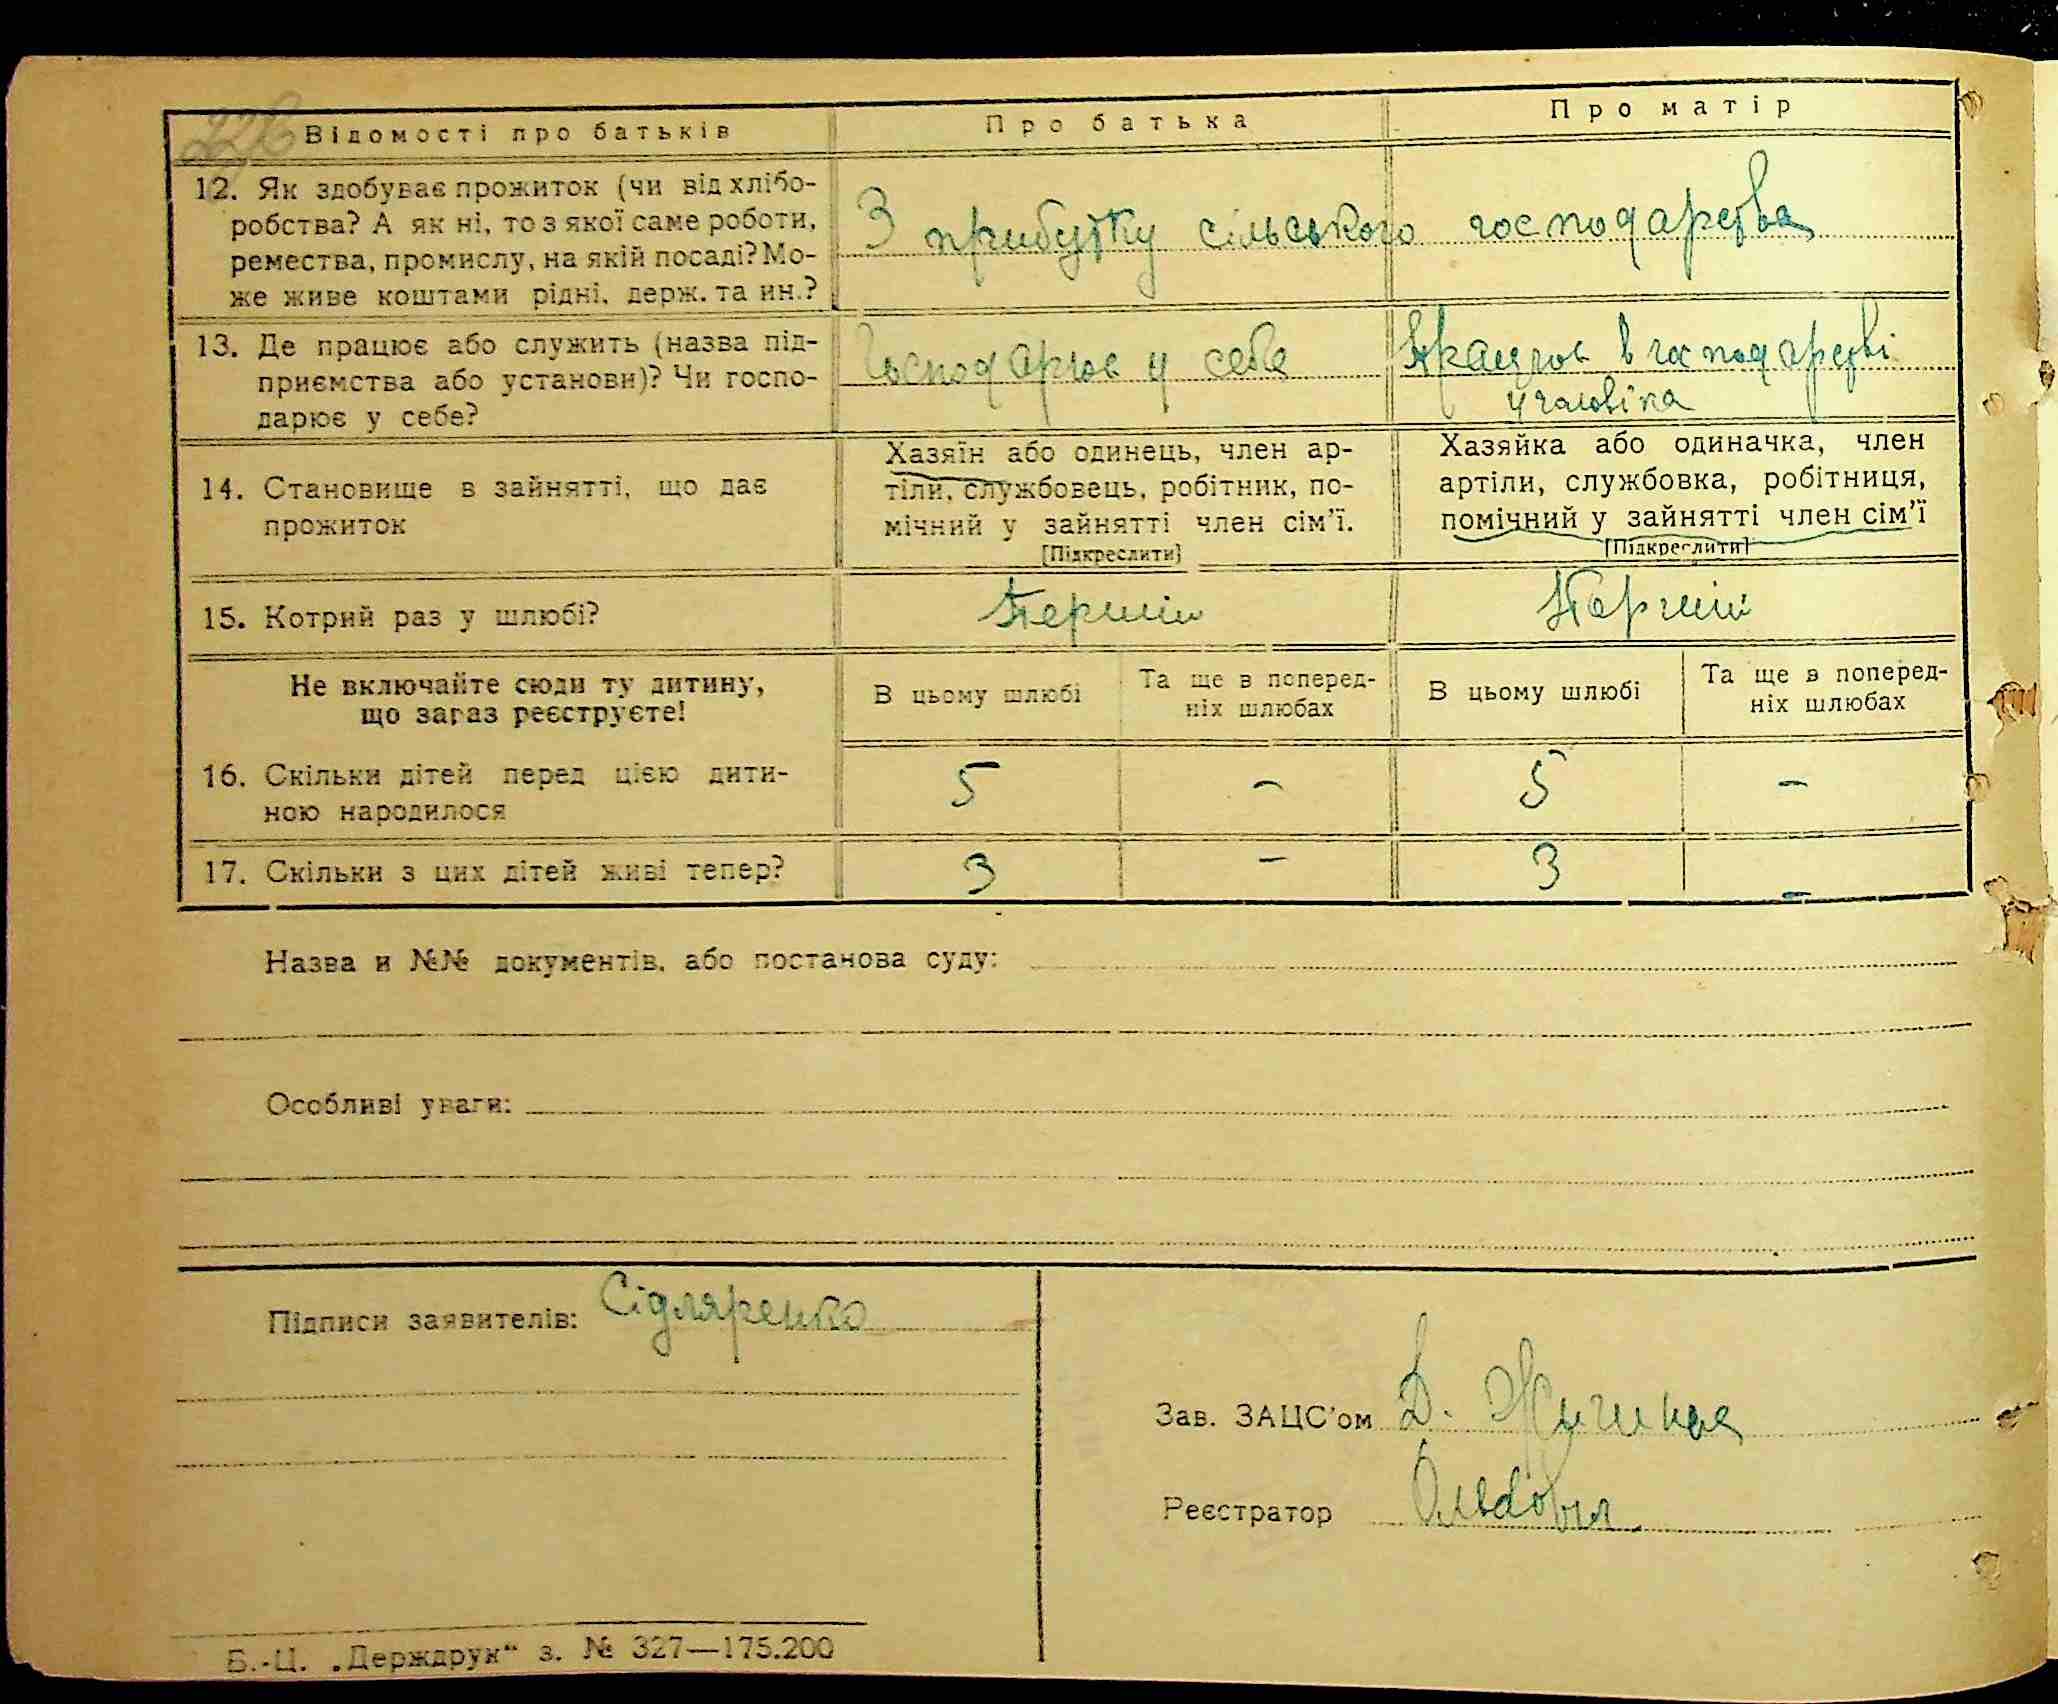 226
Відомості про батьків
Про батька
Про матір
12. Як здобуває прожиток (чи від хлібо-
робства? А як ні, то з якої саме роботи,
ремества, промислу, на якій посаді? Мо-
же живе коштами рідні, держ. та ин.?
З прибутку сільського господарства
13. Де працює або служить (назва під-
приємства або установи)? Чи госпо-
дарює у себе?
Господарює у себе
Працює в господарстві
у чоловіка
14. Становище в зайнятті, що дає
прожиток
Хазяїн або одинець, член ар-
тіли, службовець, робітник, по-
мічний у зайнятті член сім'ї.
[Підкреслити]
Хазяйка або одиначка, член
артіли, службовка, робітниця,
помічний у зайнятті член сім'ї
[Підкреслити]
15. Котрий раз у шлюбі?
Перший
Перший
Не включайте сюди ту дитину,
що зараз реєструєте!
В цьому шлюбі
Та ще в поперед-
ніх шлюбах
В цьому шлюбі
Та ще в поперед-
ніх шлюбах
16. Скільки дітей перед цією дити-
ною народилося
5 – 5 –
17. Скільки з цих дітей живі тепер?
3 – 3 –
Назва и №№ документів, або постанова суду:
Особливі уваги:
Підписи заявителів: Сідляренко
Зав. ЗАЦС'ом Д.
Реєстратор
Б.-Ц. „Держдрук" з. № 327—175.200